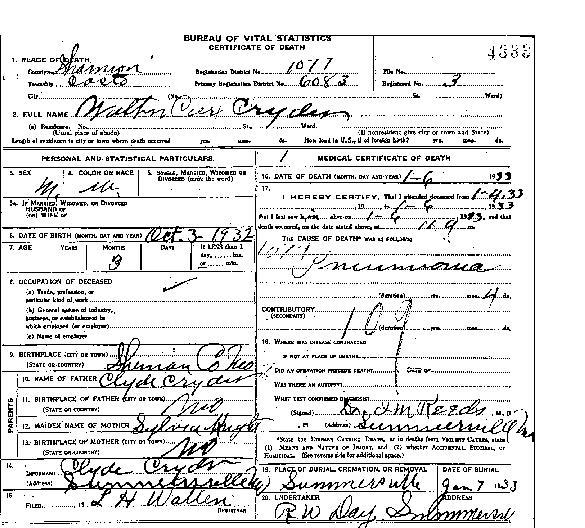 BUREAU OF VITAL STATISTICS
CERTIFICATE OF DEATH
4333
1. PLACE OF DEATH
County Shannon Registration District No. 1017 File No.
Township Primary Registration District No. 6083 Registered No. 3
City (No. St. Ward)
2. FULL NAME Walter Cryder
(a) Residence. No. St. Ward.
(Usual place of abode) (If nonresident give city or town and State)
Length of residence in city or town where death occurred yrs. mos. ds. How long in U.S., if of foreign birth? yrs. mos. ds.
PERSONAL AND STATISTICAL PARTICULARS
MEDICAL CERTIFICATE OF DEATH
3. SEX M 4. COLOR OR RACE W 5. SINGLE, MARRIED, WIDOWED OR DIVORCED (write the word)
5a. IF MARRIED, WIDOWED, OR DIVORCED
HUSBAND OF
(OR) WIFE OF
6. DATE OF BIRTH (MONTH, DAY AND YEAR) Oct. 3- 1932
7. AGE YEARS MONTHS DAYS If LESS than 1
day, hrs.
or min.
3
8. OCCUPATION OF DECEASED
(a) Trade, profession, or
particular kind of work
(b) General nature of industry,
business, or establishment in
which employed (or employer)
(c) Name of employer
9. BIRTHPLACE (CITY OR TOWN) Shannon Co Mo
(STATE OR COUNTRY)
PARENTS
10. NAME OF FATHER Clyde Cryder
11. BIRTHPLACE OF FATHER (CITY OR TOWN)
(STATE OR COUNTRY) Mo
12. MAIDEN NAME OF MOTHER Sylvia
13. BIRTHPLACE OF MOTHER (CITY OR TOWN)
(STATE OR COUNTRY) Mo
14. INFORMANT Clyde Cryder
(Address) Summersville Mo
15. FILED 19 L H Wallen
REGISTRAR
16. DATE OF DEATH (MONTH, DAY AND YEAR) 1-6 1933
17. I HEREBY CERTIFY, That I attended deceased from 1-4-33
19 to 1-6 1933
that I last saw h alive on 1-6 1933, and that
death occurred, on the date stated above, at m.
THE CAUSE OF DEATH* WAS AS FOLLOWS:
Pneumonia
(duration) yrs. mos. 4 ds.
CONTRIBUTORY
(SECONDARY)
(duration) yrs. mos. ds.
18. WHERE WAS DISEASE CONTRACTED
IF NOT AT PLACE OF DEATH?
DID AN OPERATION PRECEDE DEATH? DATE OF
WAS THERE AN AUTOPSY?
WHAT TEST CONFIRMED DIAGNOSIS?
(Signed) Dr. J M Reeds, M. D.
, 19 (Address) Summersville Mo
*State the DISEASE CAUSING DEATH, or in deaths from VIOLENT CAUSES, state
(1) MEANS AND NATURE OF INJURY, and (2) whether ACCIDENTAL, SUICIDAL, or
HOMICIDAL. (See reverse side for additional space.)
19. PLACE OF BURIAL, CREMATION, OR REMOVAL DATE OF BURIAL
Summersville Jan 7 1933
20. UNDERTAKER ADDRESS
R W Day Summersville